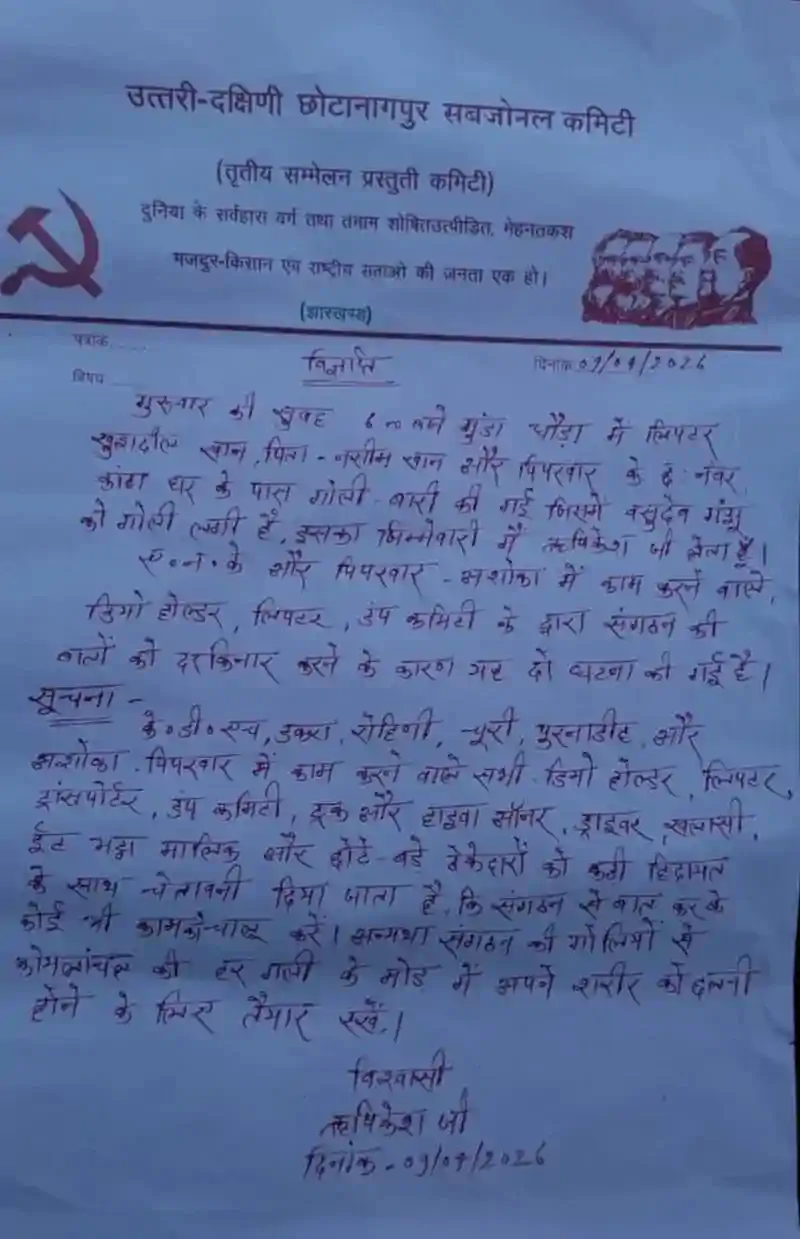 उत्तरी-दक्षिणी छोटानागपुर सबजोनल कमिटी
(तृतीय सम्मेलन प्रस्तुती कमिटी)
दुनिया के सर्वहारा वर्ग तथा तमाम शोषितउत्पीडित, मेहनतकश
मजदुर-किसान एवं राष्ट्रीय सताओ की जनता एक हो।
(झारखण्ड)
पत्रांक......
विज्ञप्ति
दिनांक 09/04/2026
विषय
गुरूवार की सुबह 6 बजे मुंडा चौड़ा में लिपटर
खुशदील खान, पिता - नसीम खान और पिपरवार के 6 नंबर
कांटा घर के पास गोली-बारी की गई जिसमें वसुदेव गंझू
को गोली लगी है, इसका जिम्मेवारी मैं ऋषिकेश जी लेता हूँ।
के और पिपरवार - अशोका में काम करने वाले,
डियो होल्डर, लिपटर, डंप कमिटी के द्वारा संगठन की
बातों को दरकिनार करने के कारण यह दो घटना की गई है।
सूचना -
के॰डी॰एच, डकरा, रोहिणी, चूरी, पुरनाडीह, और
अशोका, पिपरवार में काम करने वाले सभी डियो होल्डर, लिपटर,
ट्रांसपोर्टर, डंप कमिटी, ट्रक और हाइवा ऑनर, ड्राइवर, खलासी,
ईंट भट्ठा मालिक और छोटे-बडे ठेकेदारों को कडी हिदायत
के साथ चेतावनी दिया जाता है, कि संगठन से बात कर के
कोई भी काम को चालू करें। अन्यथा संगठन की गोलियों से
कोयलांचल की हर गली के मोड में अपने शरीर को छलनी
होने के लिए तैयार रखें।
विश्वासी
ऋषिकेश जी
दिनांक - 09/04/2026